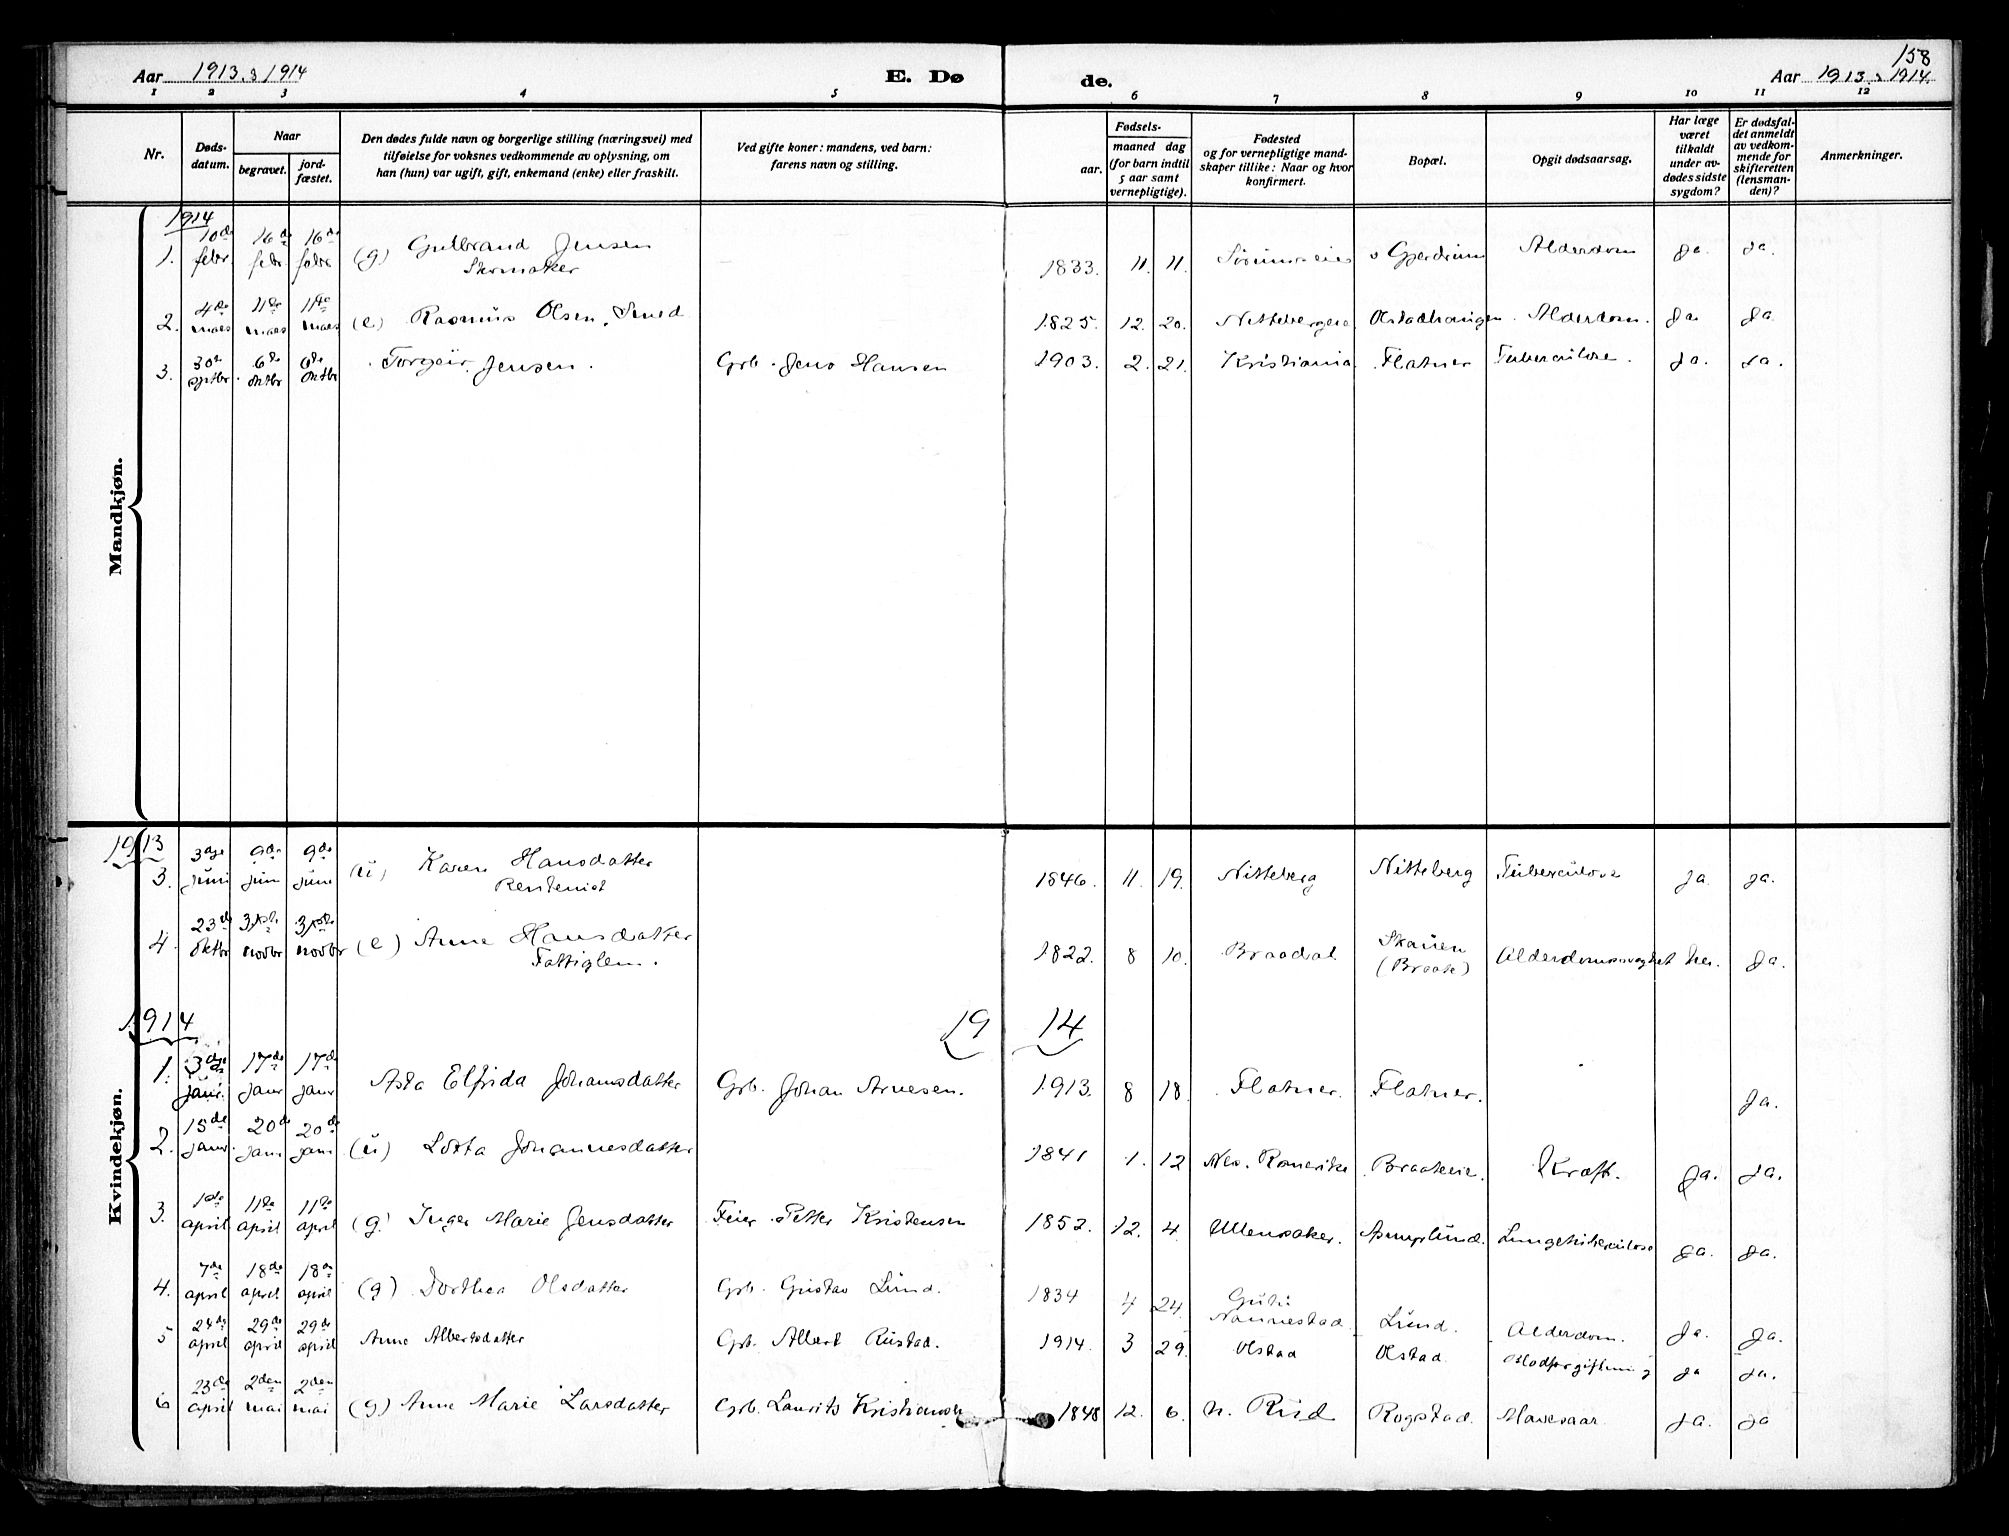 158
Aar 1913 & 1914 E. Dø de. Aar 1913 & 1914.
1 2 3 4 5 6 7 8 9 10 11 12
Nr.
Døds-
datum.
Naar
begravet.
jord-
fæstet.
Den dødes fulde navn og borgerlige stilling (næringsvei) med
tilføielse for voksnes vedkommende av oplysning, om
han (hun) var ugift, gift, enkemand (enke) eller fraskilt.
Ved gifte koner: mandens, ved barn:
farens navn og stilling.
Fødsels-
aar.
maaned dag
(for barn indtil
5 aar samt
vernepligtige).
Fødested
og for vernepligtige mand-
skaper tillike: Naar og hvor
konfirmert.
Bopæl.
Opgit dødsaarsag.
Har læge
været
tilkaldt
under av-
dødes sidste
sygdom?
Er dødsfal-
det anmeldt
av vedkom-
mende for
skifteretten
(lensman-
den)?
Anmerkninger.
Mandkjøn.
1914
1. 10de febr. 16de febr 16de febr (g) Gulbrand Jensen 1833. 11. 11. Gjerdrum Alderdom ja. ja.
Skomaker
2. 4de mars 11te mars 11te mars (e) Rasmus Olsen, Smed 1825. 12. 20. Alderdom. ja ja
3. 30te septbr. 6te oktbr 6te oktbr Torgeir Jensen. Grb. Jens Hansen 1903. 2. 21. Kristiania Flatner Tuberculose. ja. ja.
Kvindekjøn.
1913
3. 3dje juni 9de juni 9de juni (u) Karen Hansdatter 1846. 11. 19. Nitteberg Nitteberg Tuberculose ja. ja.
Rentenist
4. 23de oktbr novbr novbr (e) Anne Hansdatter 1822. 8 10. Braadal Skauen Alderdomssvaghet nei. ja.
Fattiglem. (Braate)
1914 19 14
1. 3dje januar. 17de janr 17de janr Asta Elfrida Johansdatter Grb. Johan Arnesen. 1913. 8 18. Flatner. Flatner. ja.
2. 15de janr. 20de janr 20de janr (u) Johannesdatter 1841 1. 12 Nes. Romerike Kræft. ja. ja.
3. 1ste april 11te april 11te april (g) Inger Marie Jensdatter Feier Petter Kristensen 1852. 12. 4. Ullensaker. Lungetuberculose ja. ja.
4. 7de april 18de april 18de april (g) Dorthea Olsdatter Grb. Gustav Lund. 1834 4 24. Nannestad Lund. Alderdom. ja. ja.
5 24de april 29de april 29de april Anne Albertsdatter Grb. Albert Rustad. 1914. 3 29. Olstad Olstad Blodforgiftning ja ja.
6 23de april 2den mai 2den mai (g) Anne Marie Larsdatter Grb. Laurits Kristiansen 1848 12. 6. n. Rud Rogstad. Mavesaar. ja. ja